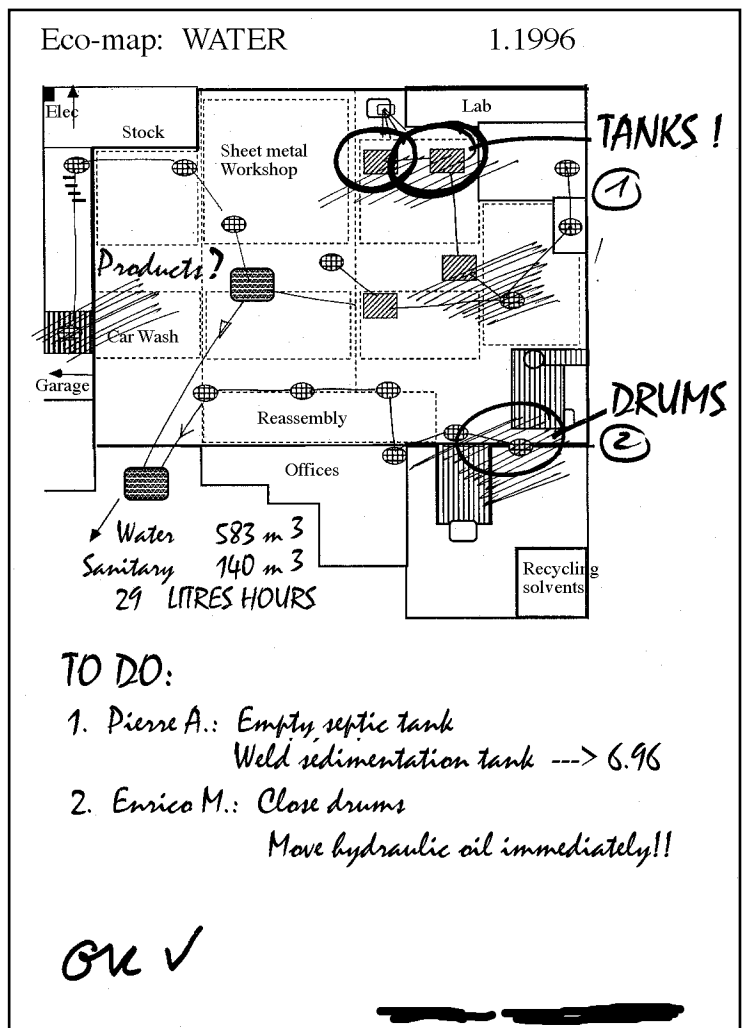 Eco-map: WATER 1.1996
Elec
Stock
Lab
Sheet metal
Workshop
TANKS !
1
Products?
Car Wash
Garage
Reassembly
DRUMS
2
Offices
Water 583 m 3
Sanitary 140 m 3
29 LITRES HOURS
Recycling
solvents
TO DO:
1. Pierre A.: Empty septic tank
Weld sedimentation tank ---> 6.96
2. Enrico M.: Close drums
Move hydraulic oil immediately!!
OK ✓